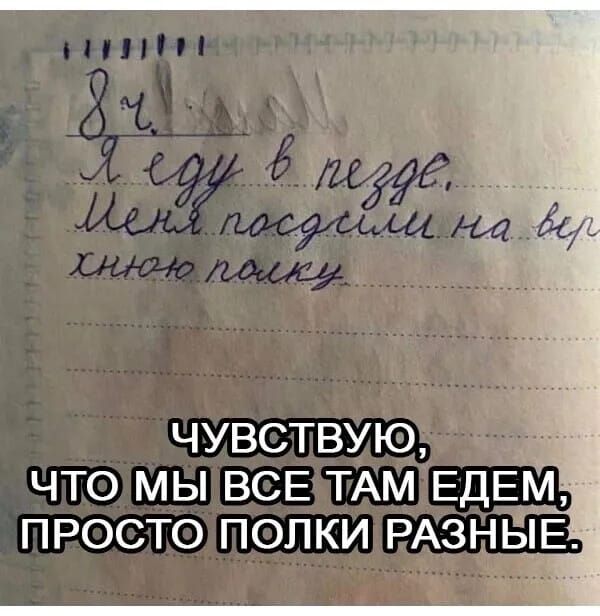 8 ч.
Я еду в пезде.
Меня посдили на вер
хнюю полку
ЧУВСТВУЮ,
ЧТО МЫ ВСЕ ТАМ ЕДЕМ,
ПРОСТО ПОЛКИ РАЗНЫЕ.